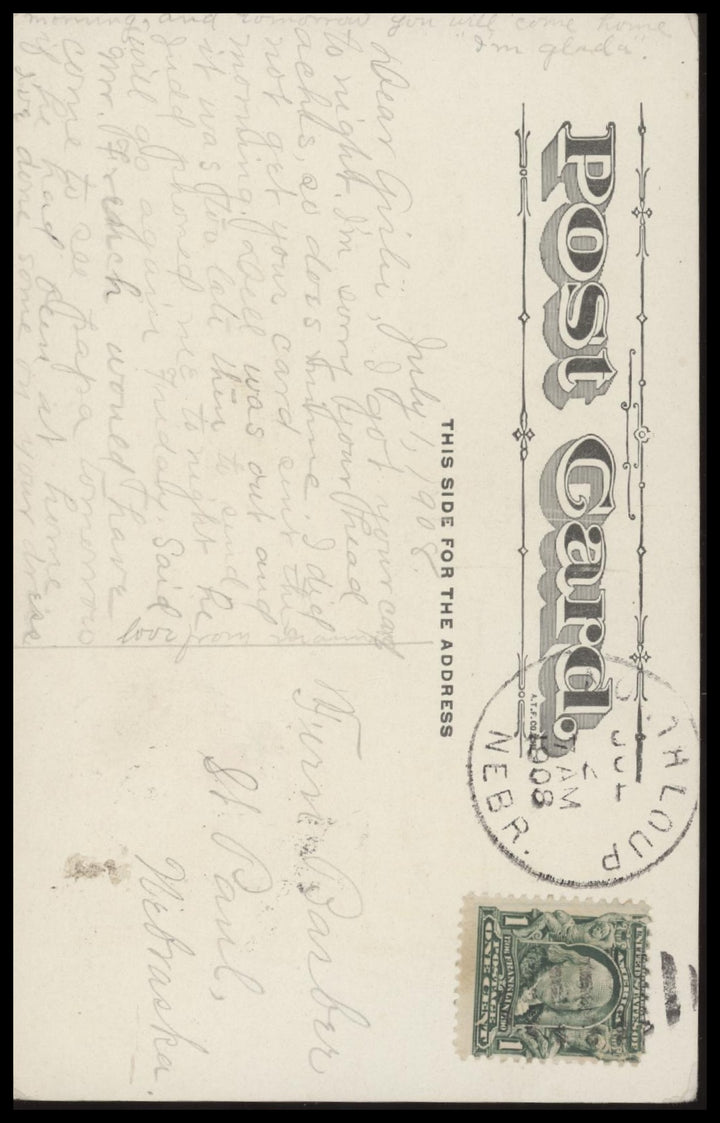 Post Card.
THIS SIDE FOR THE ADDRESS
A.T.F. CO.
TH LOUP
JUL
2
7 AM
1908
NEBR.
UNITED STATES OF AMERICA
FRANKLIN
POSTAGE
ONE CENT
1 1
July 1, 1908.
Dear Girlie, I got your card
to night. I'm sorry your head
achts, so does mine I did
not get your card sent this
morning. Dell was out and
it was too late then to send
Judd phoned me to night he
will go again Friday. Said
Mr. French would have
come to see papa tomorrow
if he had been at home
I've done some on your dress
morning, and tomorrow you will come home
"I'm glada".
love from mamma
Barber
St. Paul,
Nebraska.